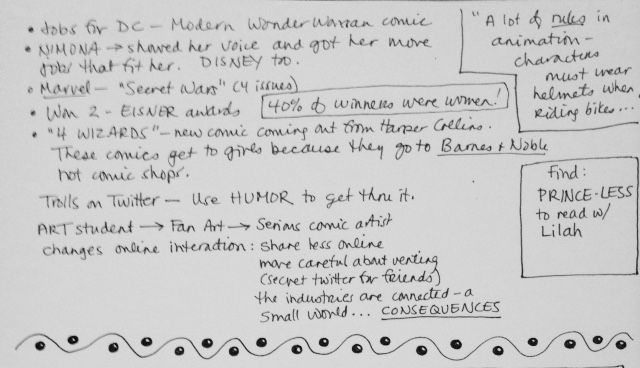 • Jobs for DC - Modern Wonder Woman comic
• NIMONA → showed her voice and got her more
jobs that fit her. DISNEY too.
• Marvel - "Secret Wars" (4 issues)
• Won 2 - EISNER awards
40% of winners were women!
• "4 WIZARDS" - new comic coming out from Harper Collins.
These comics get to girls because they go to Barnes + Noble
not comic shops.
Trolls on Twitter - Use HUMOR to get thru it.
ART student → Fan Art → Serious comic artist
changes online interaction: share less online
more careful about venting
(secret twitter for friends)
the industries are connected - a
small world... CONSEQUENCES
"A lot of rules in
animation -
characters
must wear
helmets when
riding bikes...
Find:
PRINCE-LESS
to read w/
Lilah